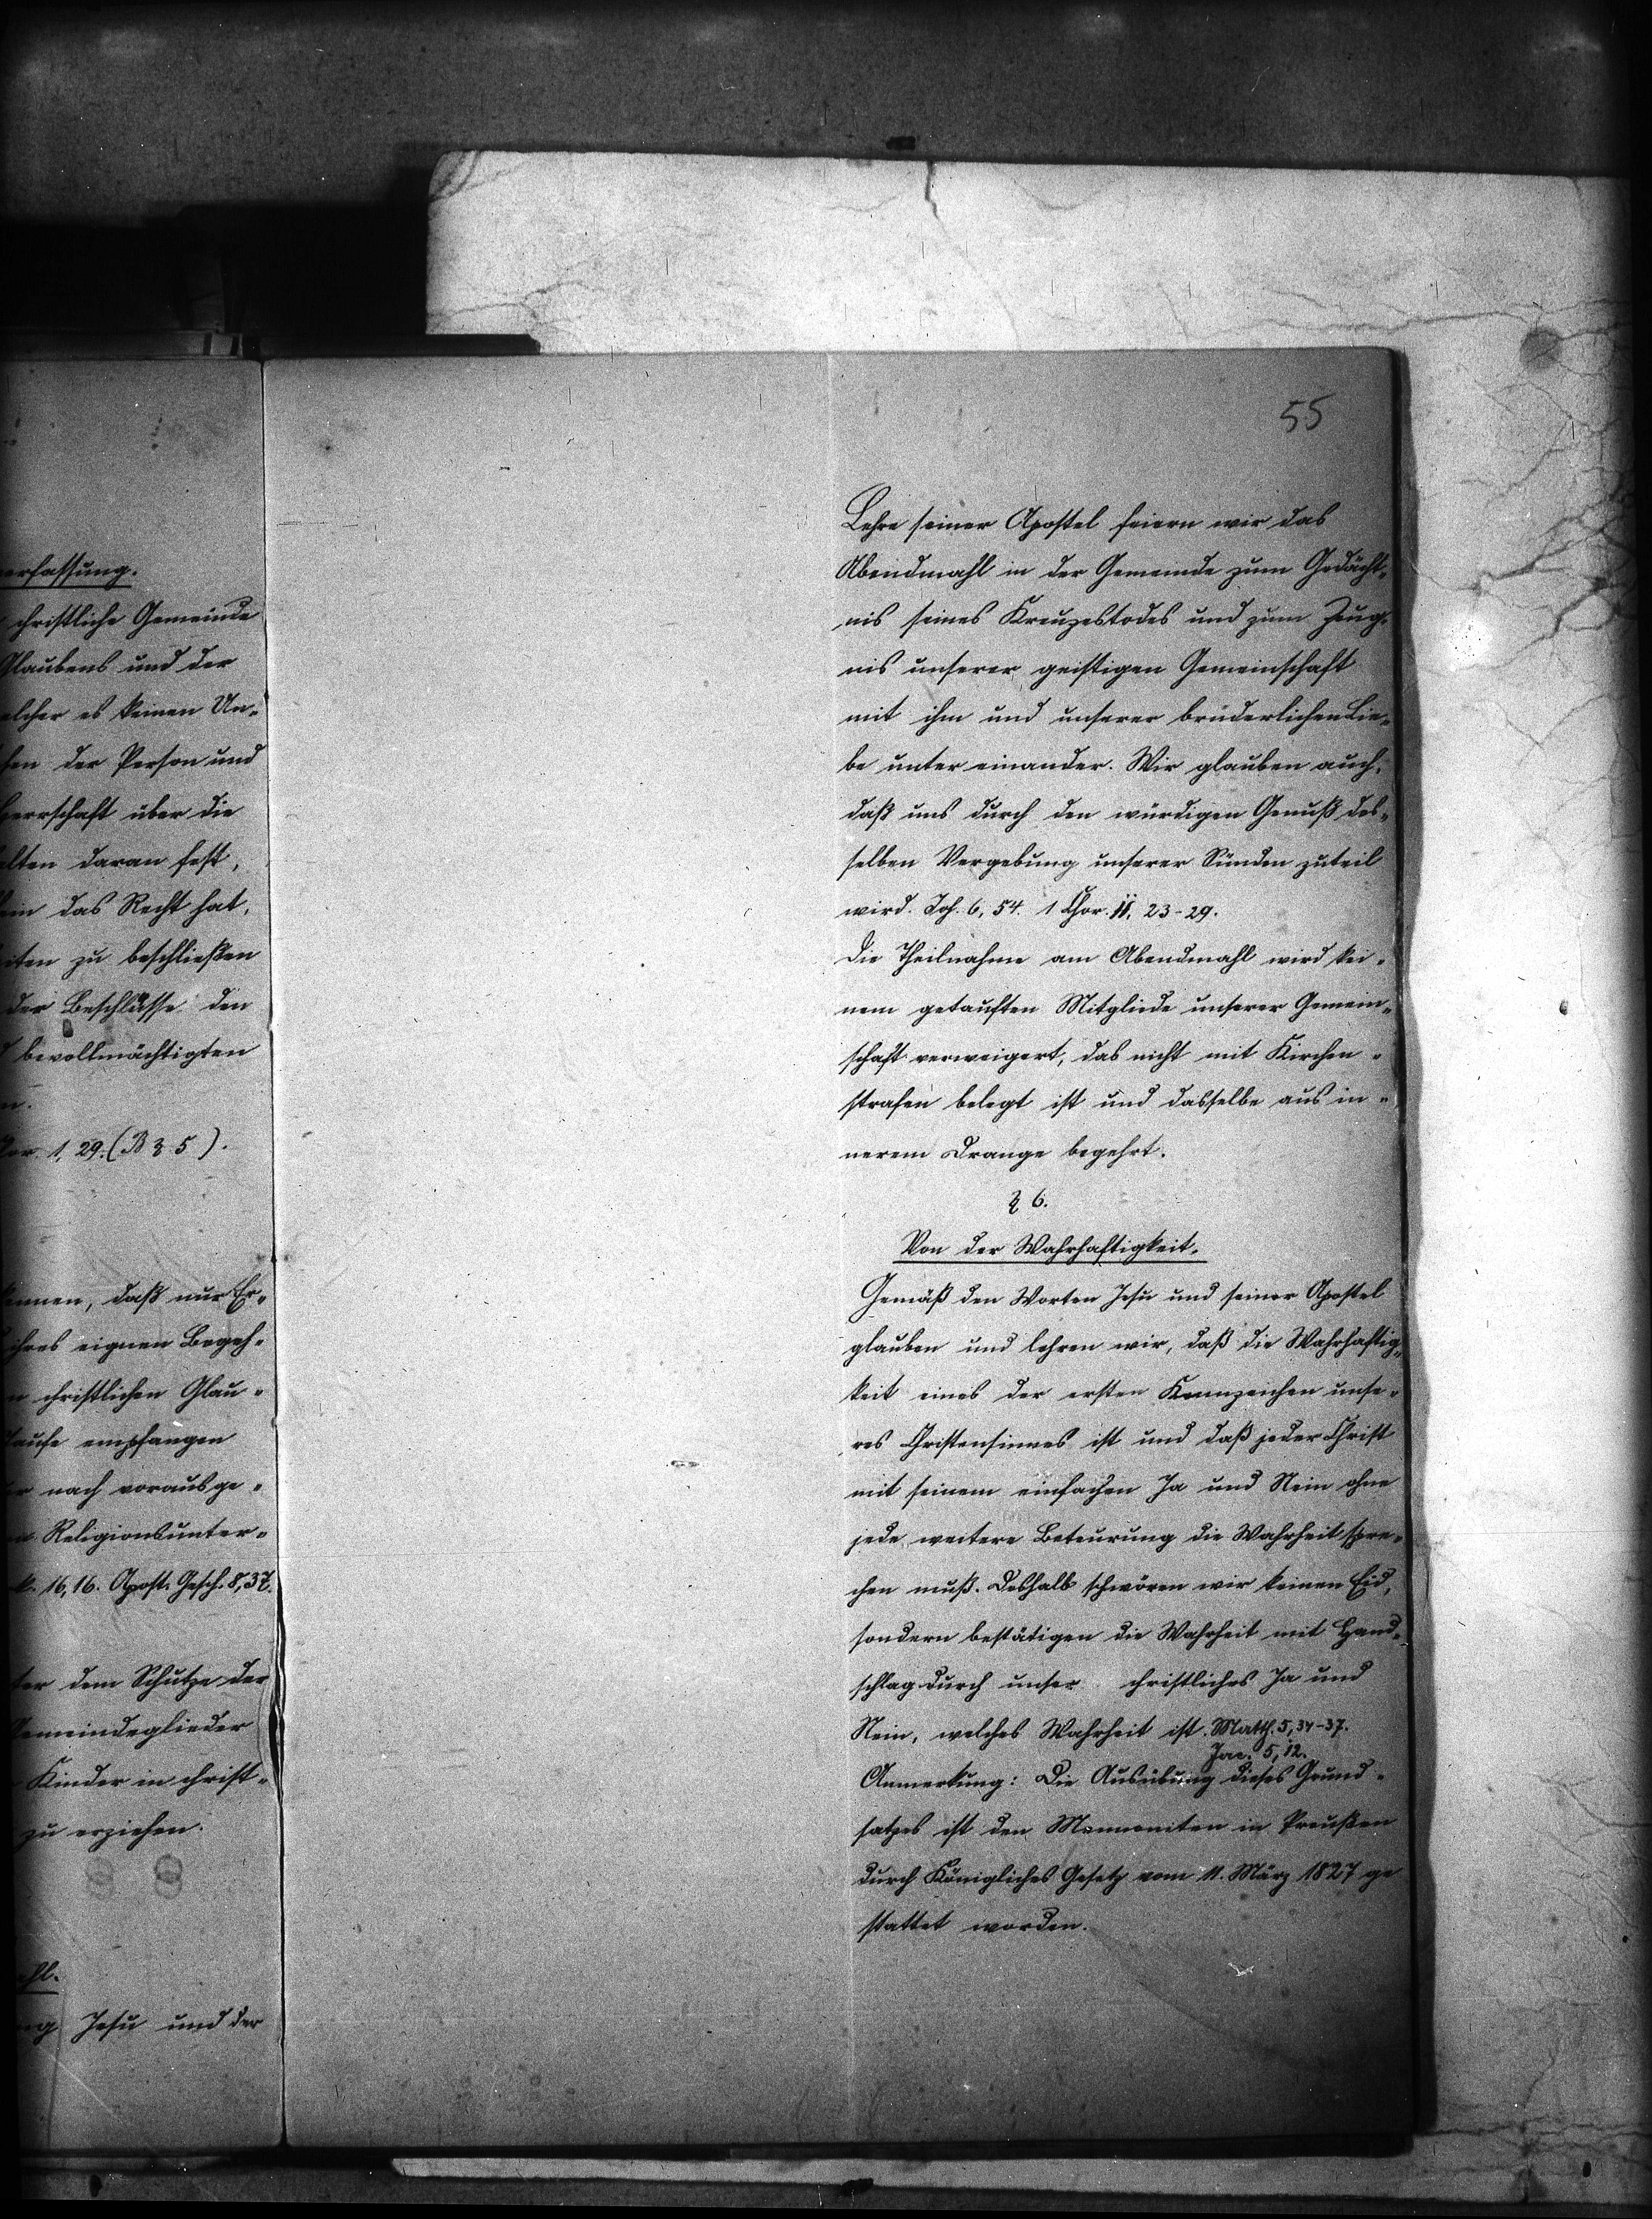 erfassung.
christliche Gemeinde
Glaubens und der
elcher es keinen Un-
hen der Person und
herrschaft über die
alten daran fest,
ein das Recht hat,
iten zu beschließen
der Beschlüsse den
bevollmächtigten
n.
Cor. 1, 29. (B § 5).
kennen, daß nur Er-
ihres eignen Begeh-
n christlichen Glau-
Taufe empfangen
er nach vorausge-
en Religionsunter-
k. 16, 16. Apost. Gesch. 8, 37.
ter dem Schutze der
Gemeindeglieder
Kinder in christ-
zu erziehen.
ahl.
ng Jesu und der
55
Lehre seiner Apostel feiern wir das
Abendmahl in der Gemeinde zum Gedächt-
nis seines Kreuzestodes und zum Zeug-
nis unserer geistigen Gemeinschaft
mit ihm und unserer brüderlichen Lie-
be unter einander. Wir glauben auch,
daß uns durch den würdigen Genuß des-
selben Vergebung unserer Sünden zuteil
wird. Joh. 6, 54. 1 Chor. 11, 23-29.
Die Theilnahme am Abendmahl wird kei-
nem getauften Mitgliede unserer Gemein-
schaft verweigert, das nicht mit Kirchen-
strafen belegt ist und dasselbe aus in-
nerem Drange begehrt.
§ 6.
Von der Wahrhaftigkeit.
Gemäß den Worten Jesu und seiner Apostel
glauben und lehren wir, daß die Wahrhaftig-
keit eines der ersten Kennzeichen unse-
res Christensinnes ist und daß jeder Christ
mit seinem einfachen Ja und Nein ohne
jede weitere Beteurung die Wahrheit spre-
chen muß. Deshalb schwören wir keinen Eid,
sondern bestätigen die Wahrheit mit Hand-
schlag durch unser christliches Ja und
Nein, welches Wahrheit ist. Matth. 5, 34-37.
Jac. 5, 12.
Anmerkung: Die Ausübung dieses Grund-
satzes ist den Mennoniten in Preußen
durch Königliches Gesetz vom 11. März 1827 ge
stattet worden.